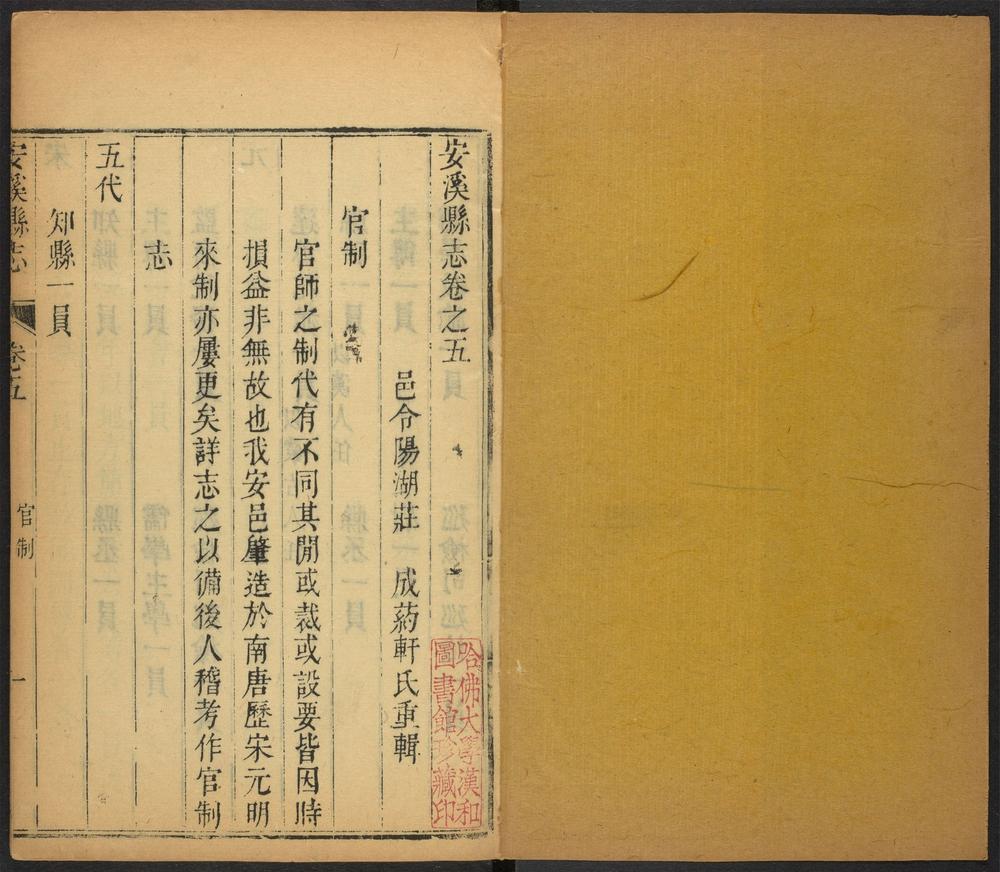 安溪縣志卷之五
邑令陽湖莊　成葯軒氏重輯
官制
官師之制代有不同其閒或裁或設要皆因時
損益非無故也我安邑肇造於南唐歷宋元明
來制亦屢更矣詳志之以備後人稽考作官制
志
五代
知縣一員
安溪縣志　卷五　官制　一
哈佛大學漢和
圖書館珍藏印